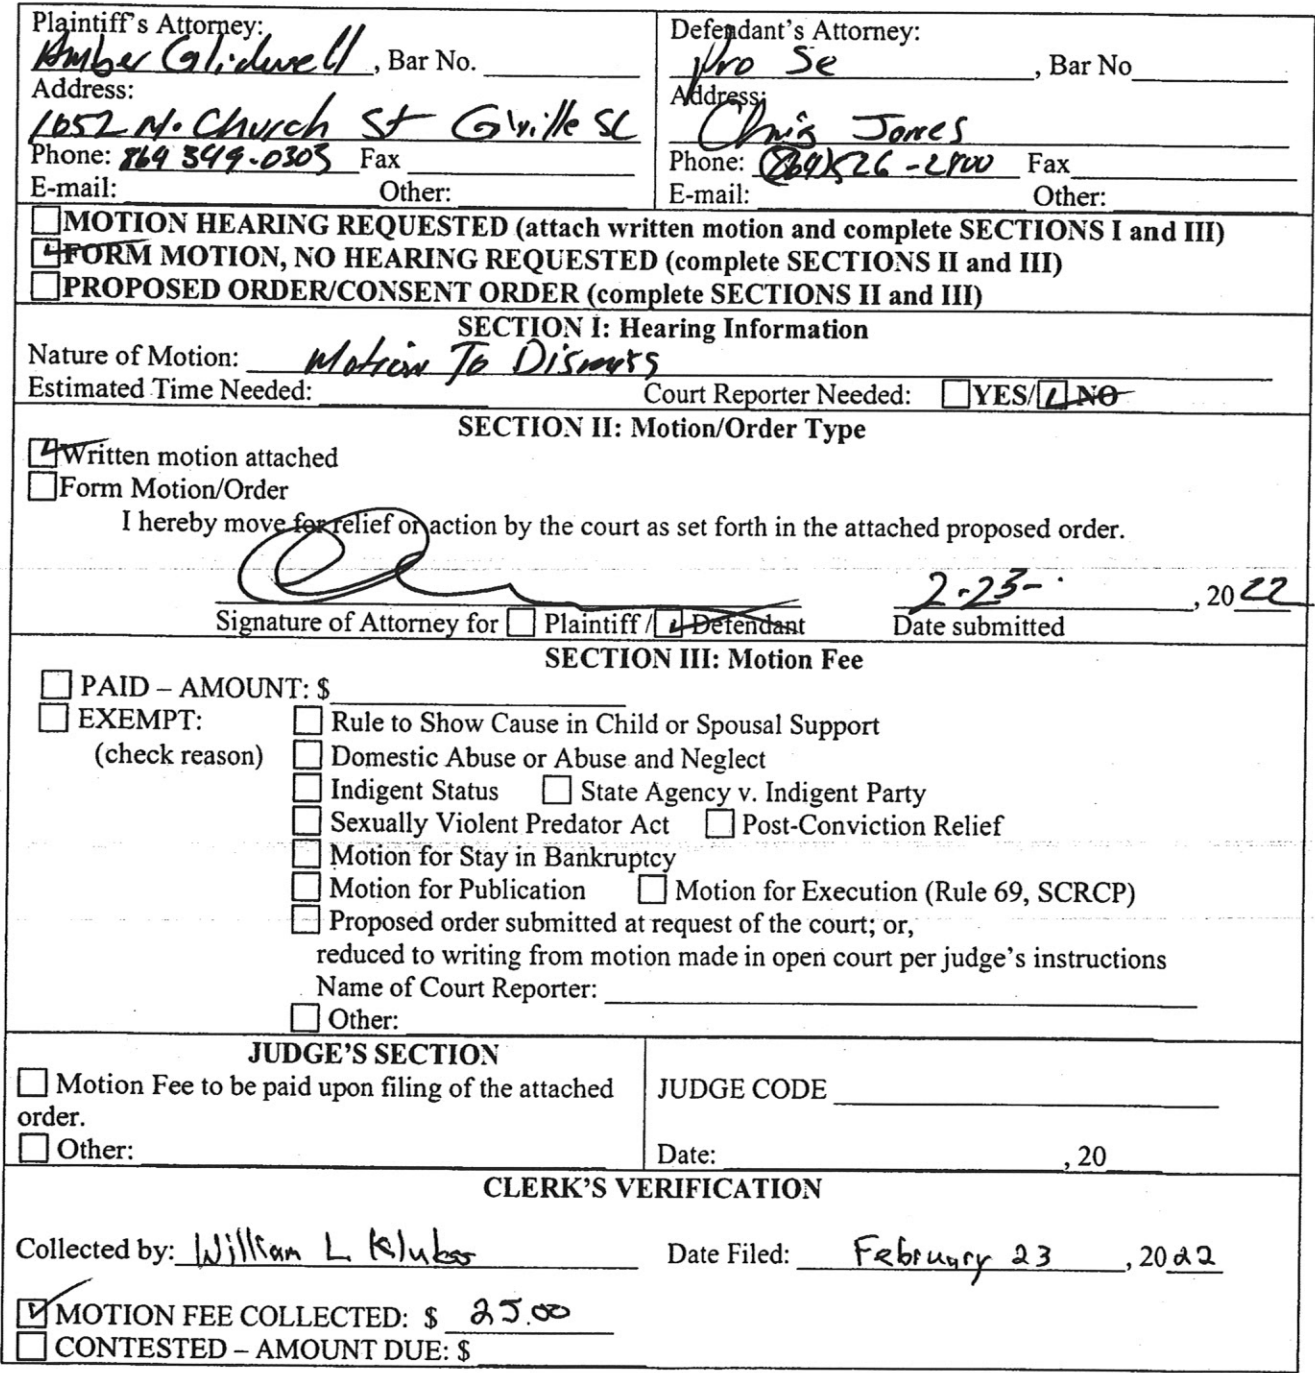 Plaintiff's Attorney:
Amber Glidwell, Bar No.
Address:
1052 N. Church St G'ville SC
Phone: 864 349-0303 Fax
E-mail: Other:
Defendant's Attorney:
Pro Se, Bar No
Address:
Chris Jones
Phone: (864) 526-2800 Fax
E-mail: Other:
MOTION HEARING REQUESTED (attach written motion and complete SECTIONS I and III)
FORM MOTION, NO HEARING REQUESTED (complete SECTIONS II and III)
PROPOSED ORDER/CONSENT ORDER (complete SECTIONS II and III)
SECTION I: Hearing Information
Nature of Motion: Motion To Dismiss
Estimated Time Needed: Court Reporter Needed: YES/ NO
SECTION II: Motion/Order Type
Written motion attached
Form Motion/Order
I hereby move for relief or action by the court as set forth in the attached proposed order.
2-23-, 2022
Signature of Attorney for Plaintiff / Defendant Date submitted
SECTION III: Motion Fee
PAID – AMOUNT: $
EXEMPT: Rule to Show Cause in Child or Spousal Support
(check reason) Domestic Abuse or Abuse and Neglect
Indigent Status State Agency v. Indigent Party
Sexually Violent Predator Act Post-Conviction Relief
Motion for Stay in Bankruptcy
Motion for Publication Motion for Execution (Rule 69, SCRCP)
Proposed order submitted at request of the court; or,
reduced to writing from motion made in open court per judge's instructions
Name of Court Reporter:
Other:
JUDGE'S SECTION
Motion Fee to be paid upon filing of the attached
order.
Other:
JUDGE CODE
Date: , 20
CLERK'S VERIFICATION
Collected by: William L. Date Filed: February 23, 2022
MOTION FEE COLLECTED: $ 25.00
CONTESTED – AMOUNT DUE: $